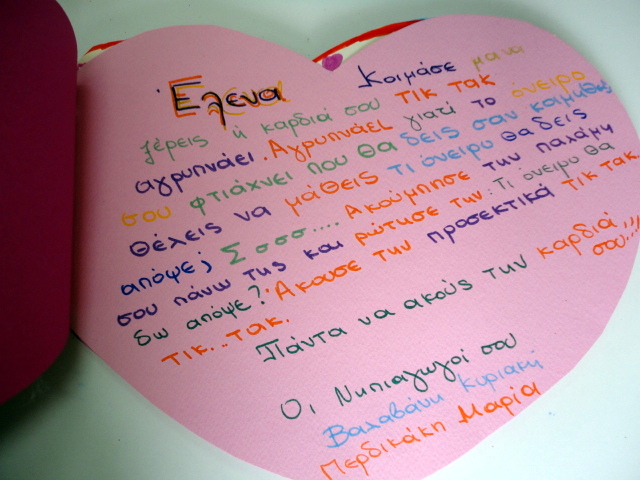 Έλενα
Κοιμάσε μα να
ξέρεις η καρδιά σου τικ τακ
αγρυπνάει. Αγρυπνάει γιατί το όνειρο
σου φτιάχνει που θα δεις σαν κοιμηθείς
Θέλεις να μάθεις τι όνειρο θα δεις
απόψε; Σσσσ.... Ακούμπησε την παλάμη
σου πάνω της και ρώτησε την: Τι όνειρο θα
δω απόψε? Άκουσε την προσεκτικά τικ τακ
τικ... τακ.
Πάντα να ακούς την καρδιά
σου...!!!
Οι Νηπιαγωγοί σου
Βαλαβάνη Κυριακή
Περδικάκη Μαρία